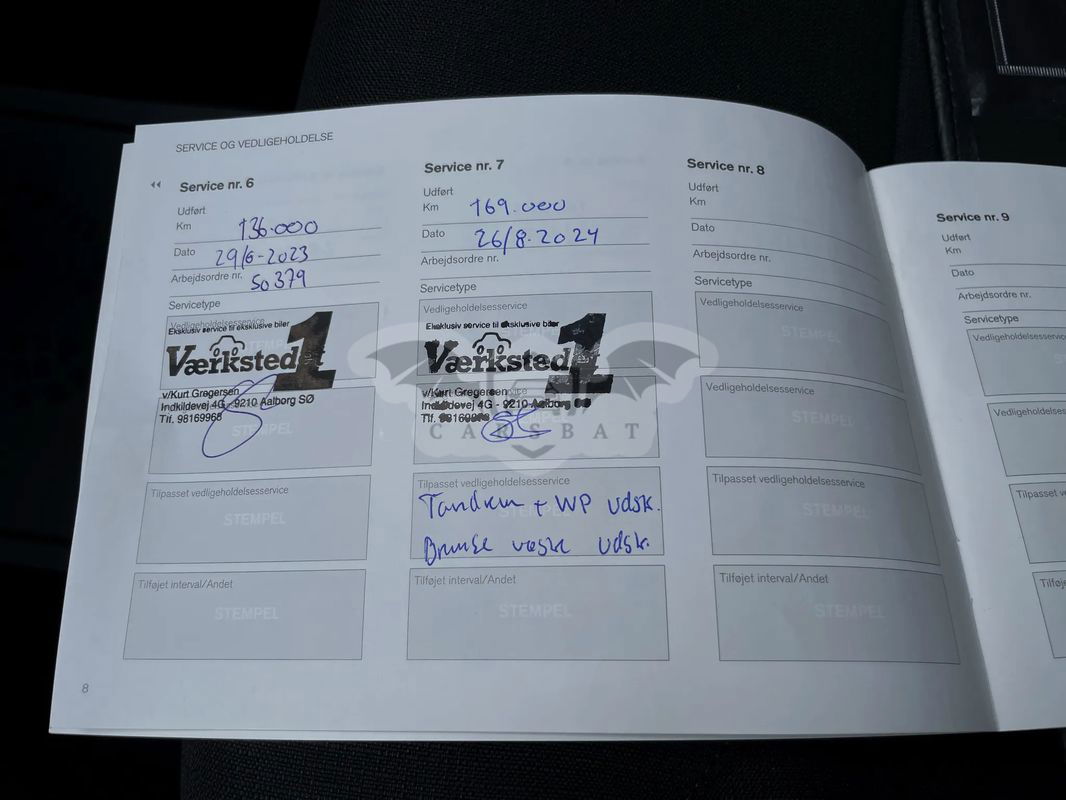 SERVICE OG VEDLIGEHOLDELSE
Service nr. 6
Udført
Km 136.000
Dato 29/6-2023
Arbejdsordre nr. 50379
Servicetype
Vedligeholdelsesservice
Eksklusiv service til eksklusive biler
Værksted 1
v/Kurt Gregersen
Indkildevej 4G - 9210 Aalborg SØ
Tlf. 98169968
STEMPEL
Tilpasset vedligeholdelsesservice
STEMPEL
Tilføjet interval/Andet
STEMPEL
8
Service nr. 7
Udført
Km 169.000
Dato 26/8-2024
Arbejdsordre nr.
Servicetype
Vedligeholdelsesservice
Eksklusiv service til eksklusive biler
Værksted 1
v/Kurt Gregersen
Indkildevej 4G - 9210 Aalborg
Tlf.
CARSBAT
Tilpasset vedligeholdelsesservice
Tandrem + WP udsk.
Bremse væske udsk.
Tilføjet interval/Andet
STEMPEL
Service nr. 8
Udført
Km
Dato
Arbejdsordre nr.
Servicetype
Vedligeholdelsesservice
STEMPEL
Vedligeholdelsesservice
STEMPEL
Tilpasset vedligeholdelsesservice
STEMPEL
Tilføjet interval/Andet
STEMPEL
Service nr. 9
Udført
Km
Dato
Arbejdsordre nr.
Servicetype